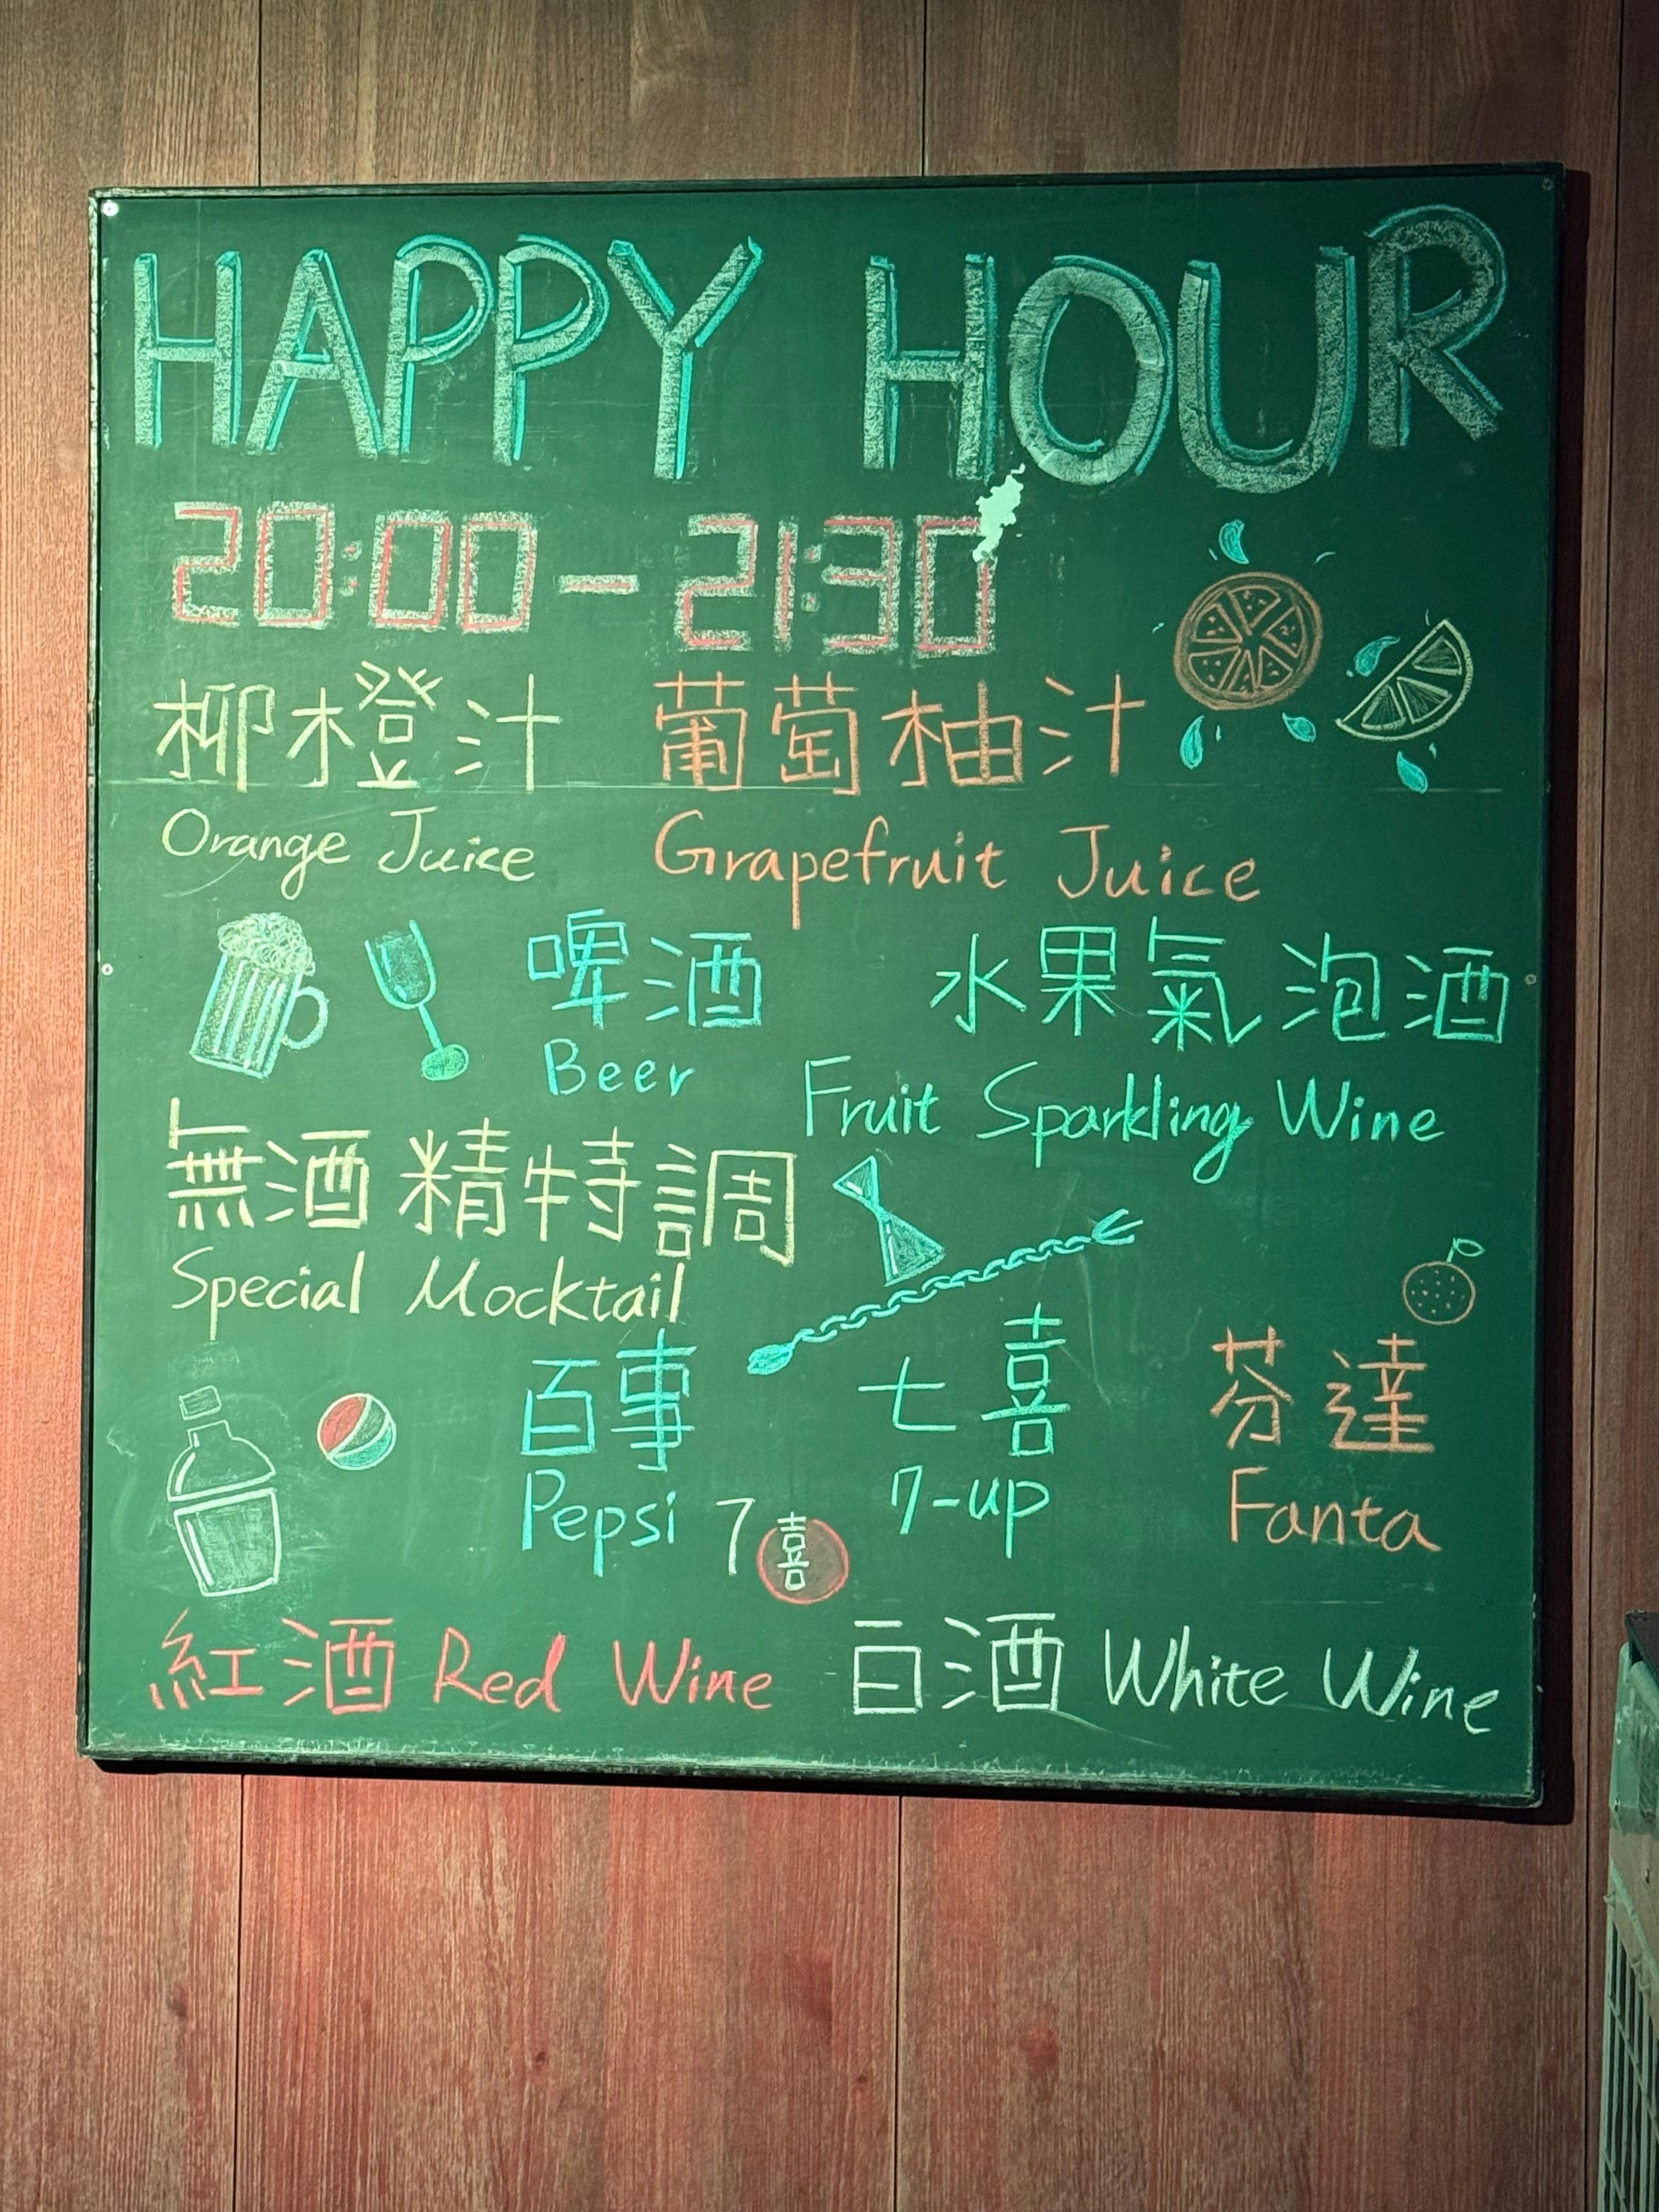 HAPPY HOUR
20:00 - 21:30
柳橙汁 葡萄柚汁
Orange Juice Grapefruit Juice
啤酒 水果氣泡酒
Beer Fruit Sparkling Wine
無酒精特調
Special Mocktail
百事 七喜 芬達
Pepsi 7-up Fanta
7喜
紅酒 Red Wine 白酒 White Wine